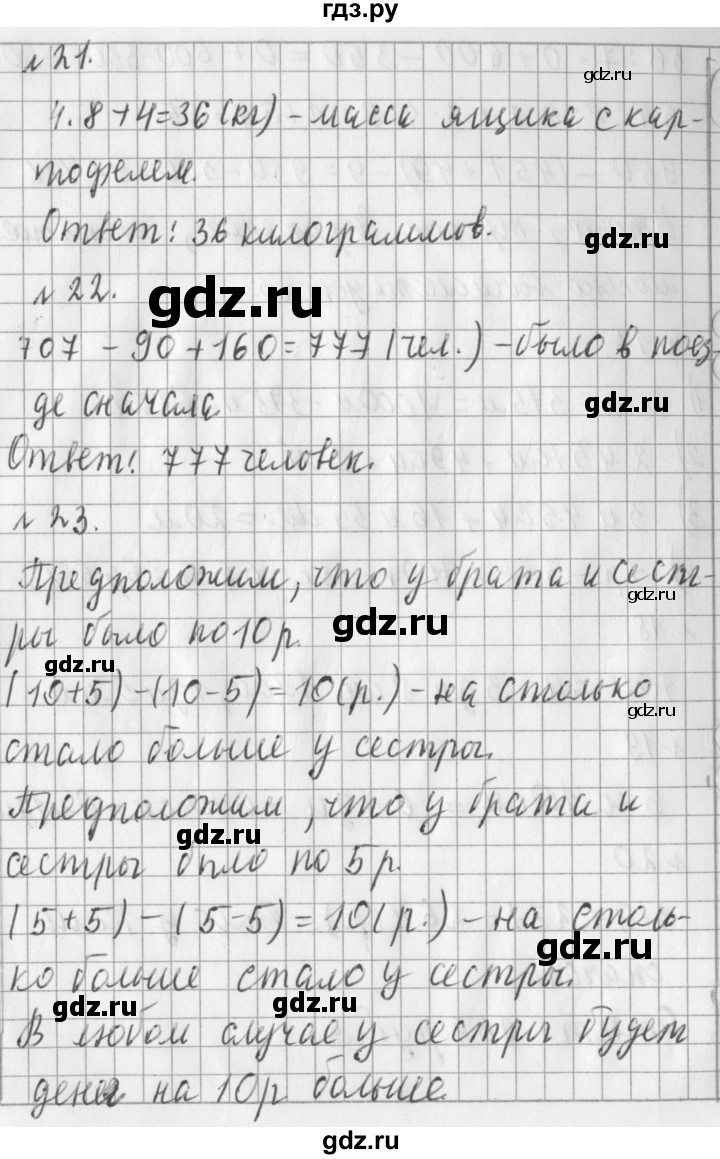 гдз.ру
№21.
4.8+4=36(кг) - масса ящика с кар-
тофелем.
Ответ: 36 килограммов.
№22.
707 - 90 + 160 = 777 (чел.) - было в поез-
де сначала
Ответ: 777 человек.
№23.
Предположим, что у брата и сест-
ры было по 10 р.
(10+5)-(10-5)=10(р.) - на столько
стало больше у сестры.
Предположим, что у брата и
сестры было по 5р.
(5+5)-(5-5)=10(р.) - на столь-
ко больше стало у сестры.
В любом случае у сестры будет
денег на 10р больше.
gdz.ru
gdz.ru
gdz.ru
gdz.ru
gdz.ru
gdz.ru
gdz.ru
gdz.ru
gdz.ru
gdz.ru
gdz.ru
gdz.ru
gdz.ru